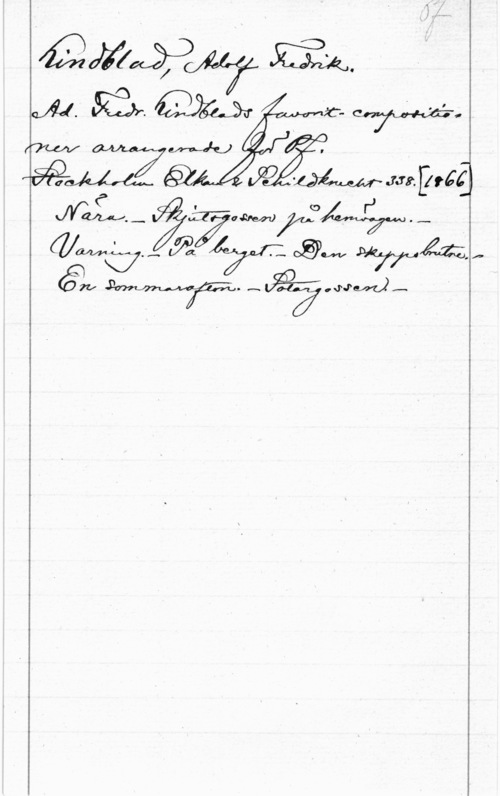 Pf
Lindblad, Adolf Fredrik.
Ad. Fredr. Lindblads favorit-compositio-
ner arrangerade för Pf.
Stockholm Elkan & Schildknecht 338. [1866]
Nära. – Skjutsgossen på hemvägen. –
Varning. – På berget. – Den skeppsbrutne. –
En sommarafton. – Sotargossen. –